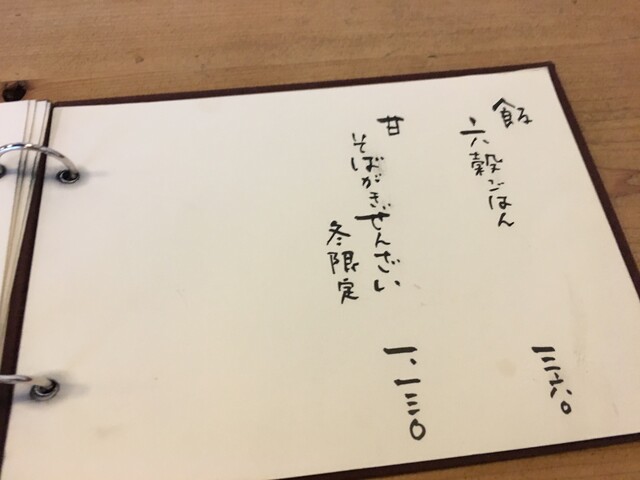 飯
六穀ごはん
三六〇
甘
そばがきぜんざい
冬限定
一、一三〇